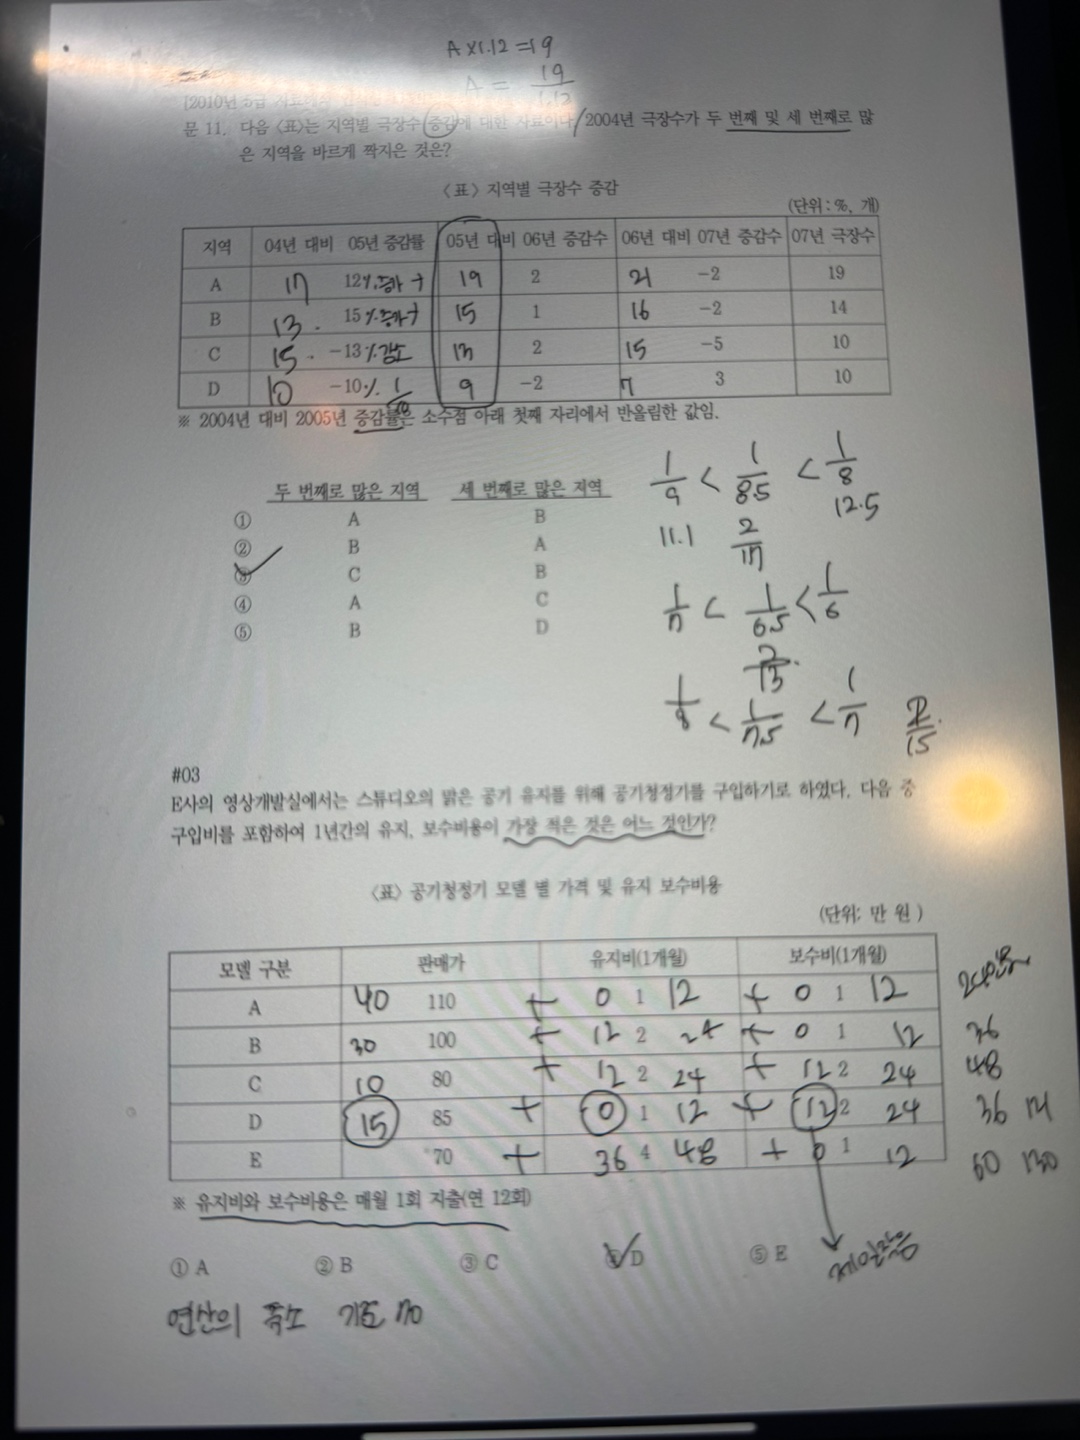 A×1.12=19
A = 19/1.12
[2010년 5급
문 11. 다음 〈표〉는 지역별 극장수 증감에 대한 자료이다 / 2004년 극장수가 두 번째 및 세 번째로 많
은 지역을 바르게 짝지은 것은?
〈표〉 지역별 극장수 증감
(단위: %, 개)
지역 04년 대비 05년 증감률 05년 대비 06년 증감수 06년 대비 07년 증감수 07년 극장수
A 17 12%증가 + 19 2 21 -2 19
B 13. 15%증가+ 15 1 16 -2 14
C 15. -13%감소 13 2 15 -5 10
D 10 -10% 1/10 9 -2 7 3 10
※ 2004년 대비 2005년 증감률은 소수점 아래 첫째 자리에서 반올림한 값임.
두 번째로 많은 지역 세 번째로 많은 지역
① A B
② B A
③ C B
④ A C
⑤ B D
1/9 < 1/8.5 < 1/8
11.1 2/17 12.5
1/7 < 1/6.5 < 1/6
2/13
1/8 < 1/7.5 < 1/7 2/15
#03
E사의 영상개발실에서는 스튜디오의 맑은 공기 유지를 위해 공기청정기를 구입하기로 하였다. 다음 중
구입비를 포함하여 1년간의 유지, 보수비용이 가장 적은 것은 어느 것인가?
〈표〉 공기청정기 모델 별 가격 및 유지 보수비용
(단위: 만 원)
모델 구분 판매가 유지비(1개월) 보수비(1개월)
A 40 110 + 0 1 12 + 0 1 12
B 30 100 + 12 2 24 + 0 1 12 36
C 10 80 + 12 2 24 + 12 2 24 48
D 15 85 + 0 1 12 + 12 2 24 36
E 70 + 36 4 48 + 0 1 12 60 130
※ 유지비와 보수비용은 매월 1회 지출(연 12회)
① A ② B ③ C ④ D ⑤ E
연산의 축소 기준 70